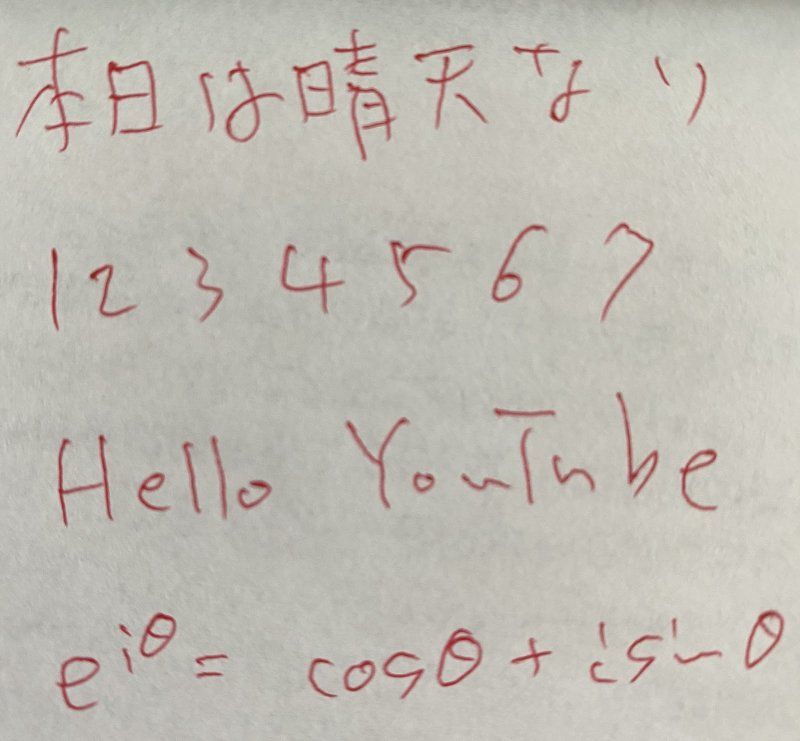 本日は晴天なり
1 2 3 4 5 6 7
Hello YouTube
e^{iθ} = cosθ + isinθ